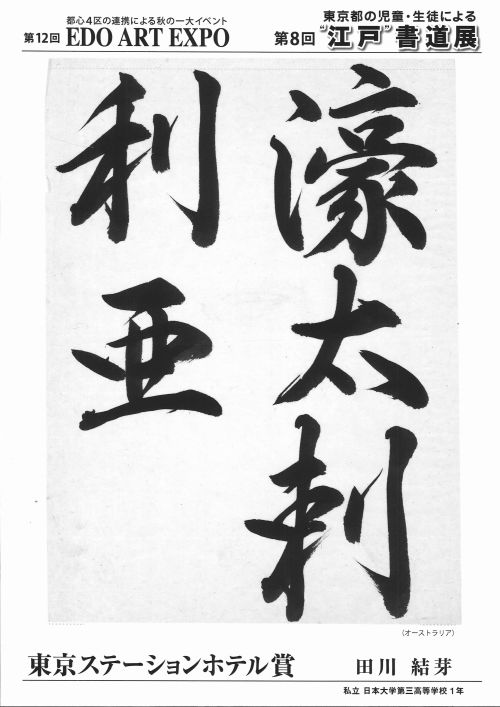 都心4区の連携による秋の一大イベント
第12回 EDO ART EXPO
東京都の児童・生徒による
第8回 "江戸"書道展
濠太剌
利亜
(オーストラリア)
東京ステーションホテル賞 田川 結芽
私立 日本大学第三高等学校1年